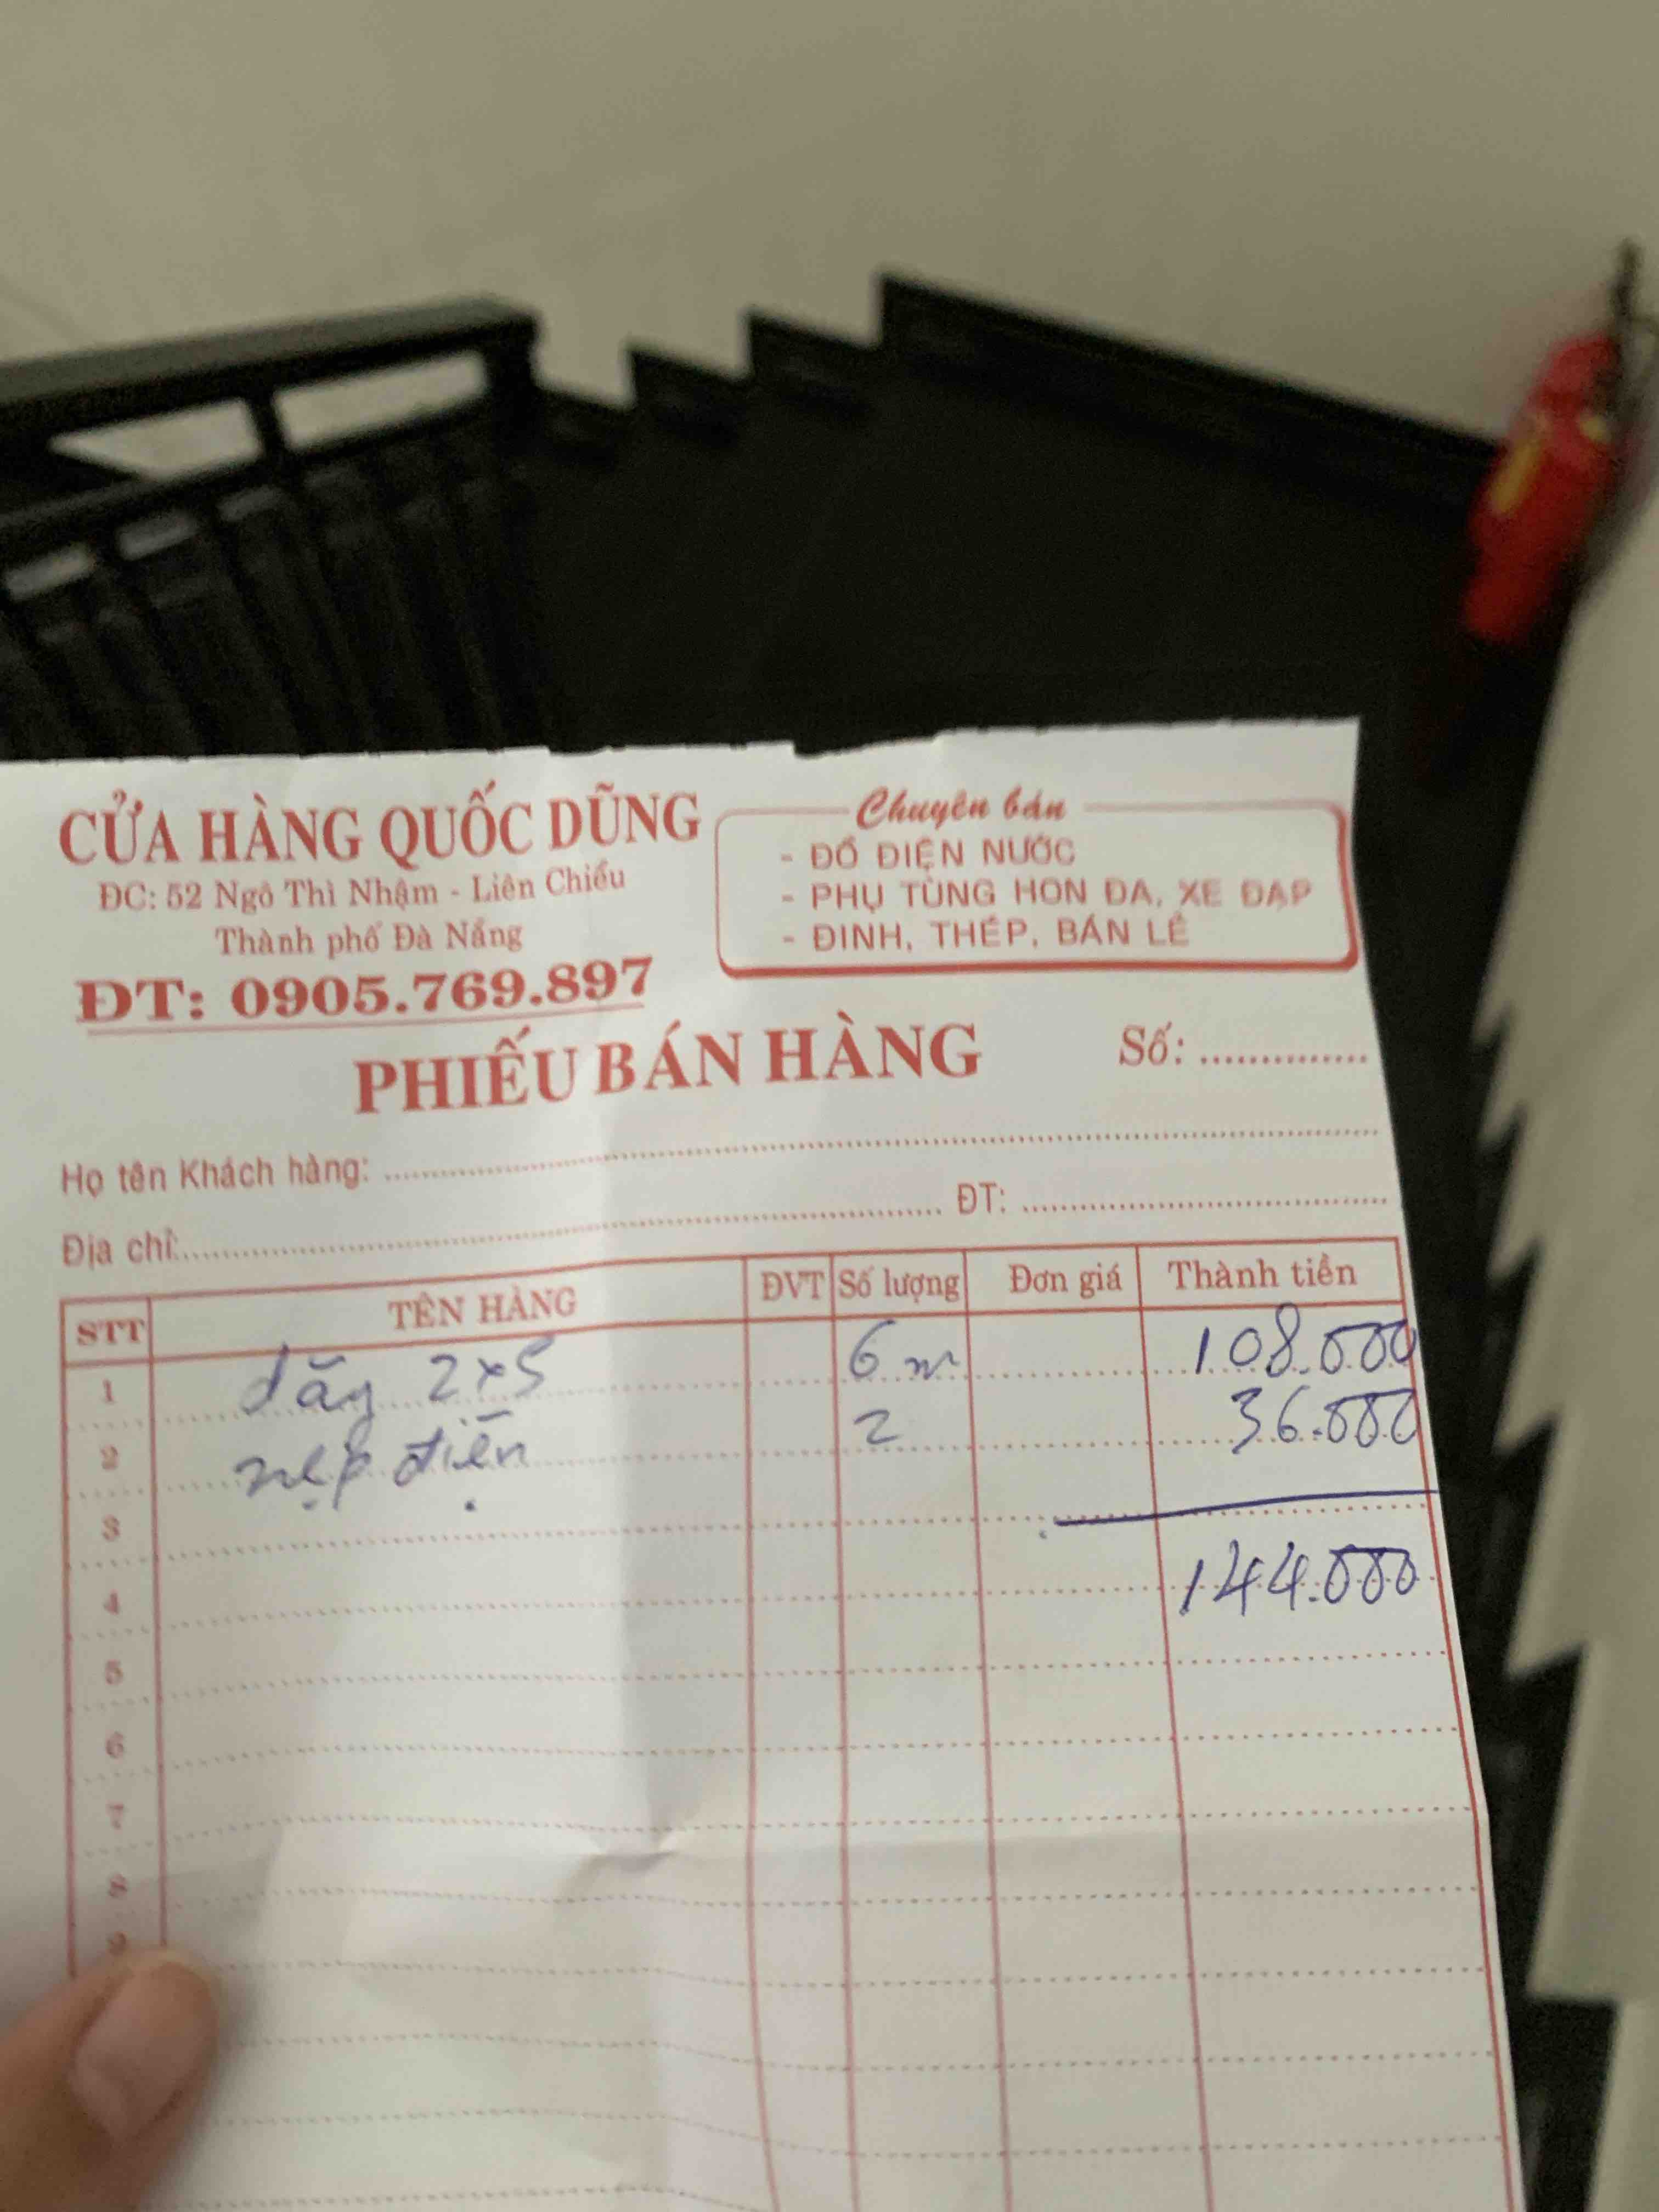 CỬA HÀNG QUỐC DŨNG
ĐC: 52 Ngô Thì Nhậm - Liên Chiểu
Thành phố Đà Nẵng
ĐT: 0905.769.897
Chuyên bán
- ĐỒ ĐIỆN NƯỚC
- PHỤ TÙNG HON ĐA, XE ĐẠP
- ĐINH, THÉP, BÁN LẺ
PHIẾU BÁN HÀNG Số: ..............
Họ tên Khách hàng: ..............
Địa chỉ:.............. ĐT: ..............
STT TÊN HÀNG ĐVT Số lượng Đơn giá Thành tiền
1 dây 2x5 6 m 108.000
2 nẹp điện 2 36.000
3
4 144.000
5
6
7
8
9